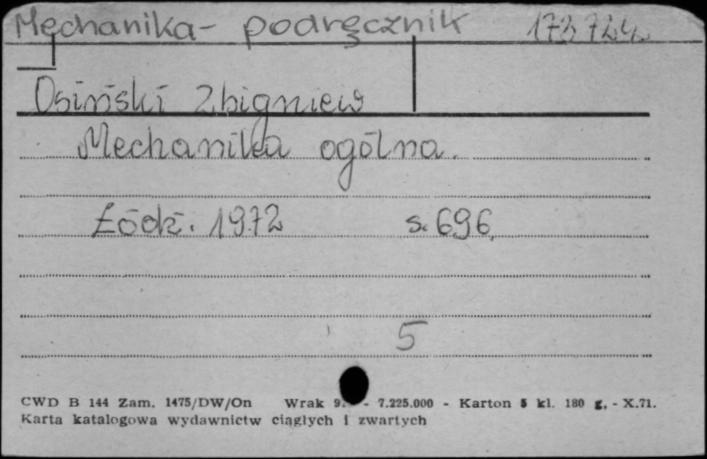 Mechanika - podręcznik
Osiński Zbigniew
Mechanika ogólna.
Łódź. 1972 s. 696
5
CWD B 144 Zam. 1475/DW/On Wrak - 7.225.000 - Karton 5 kl. 180 g. - X.71.
Karta katalogowa wydawnictw ciągłych i zwartych